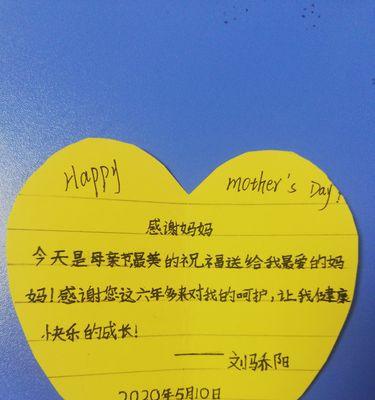 Happy mother's Day!
感谢妈妈
今天是母亲节最美的祝福送给我最爱的妈
妈!感谢您这六年多来对我的呵护,让我健康
快乐的成长!
——刘骄阳
2020年5月10日